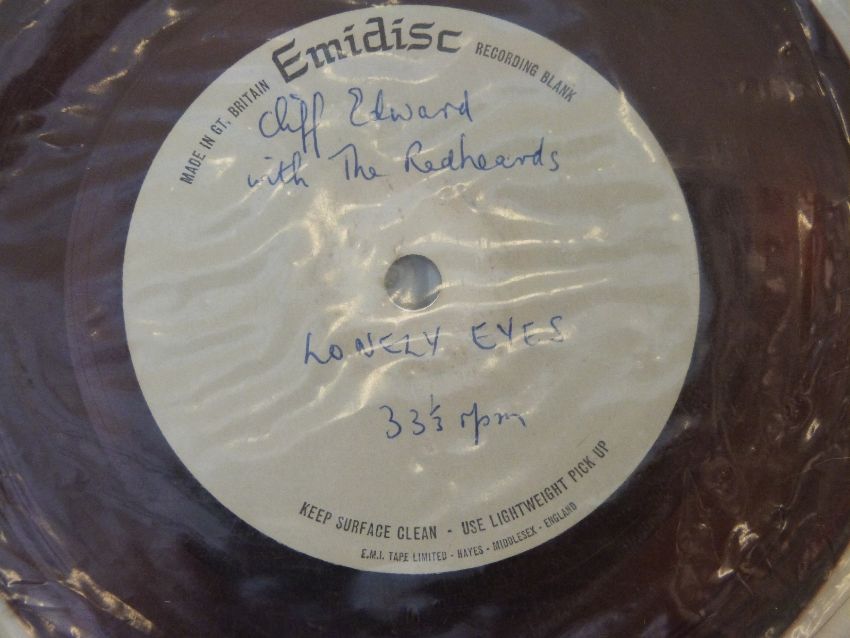 Emidisc
MADE IN GT. BRITAIN
RECORDING BLANK
Cliff Edward
with The Redheards
LONELY EYES
33⅓ rpm
KEEP SURFACE CLEAN - USE LIGHTWEIGHT PICK UP
E.M.I. TAPE LIMITED - HAYES - MIDDLESEX - ENGLAND